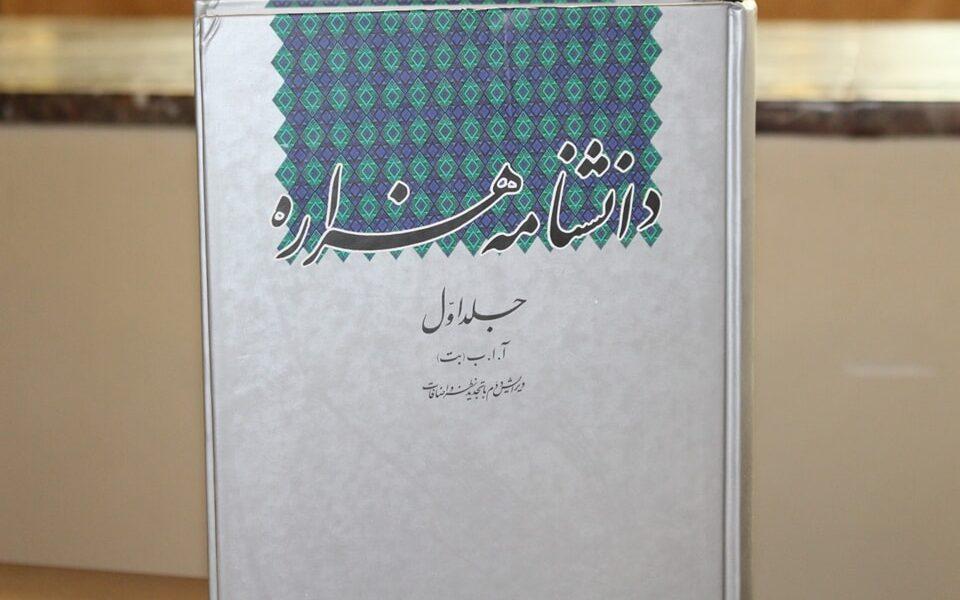 دانشنامه هزاره
جلد اوّل
آ. ا. ب (بت)
ویرایش دوم با تجدید نظر و اضافات